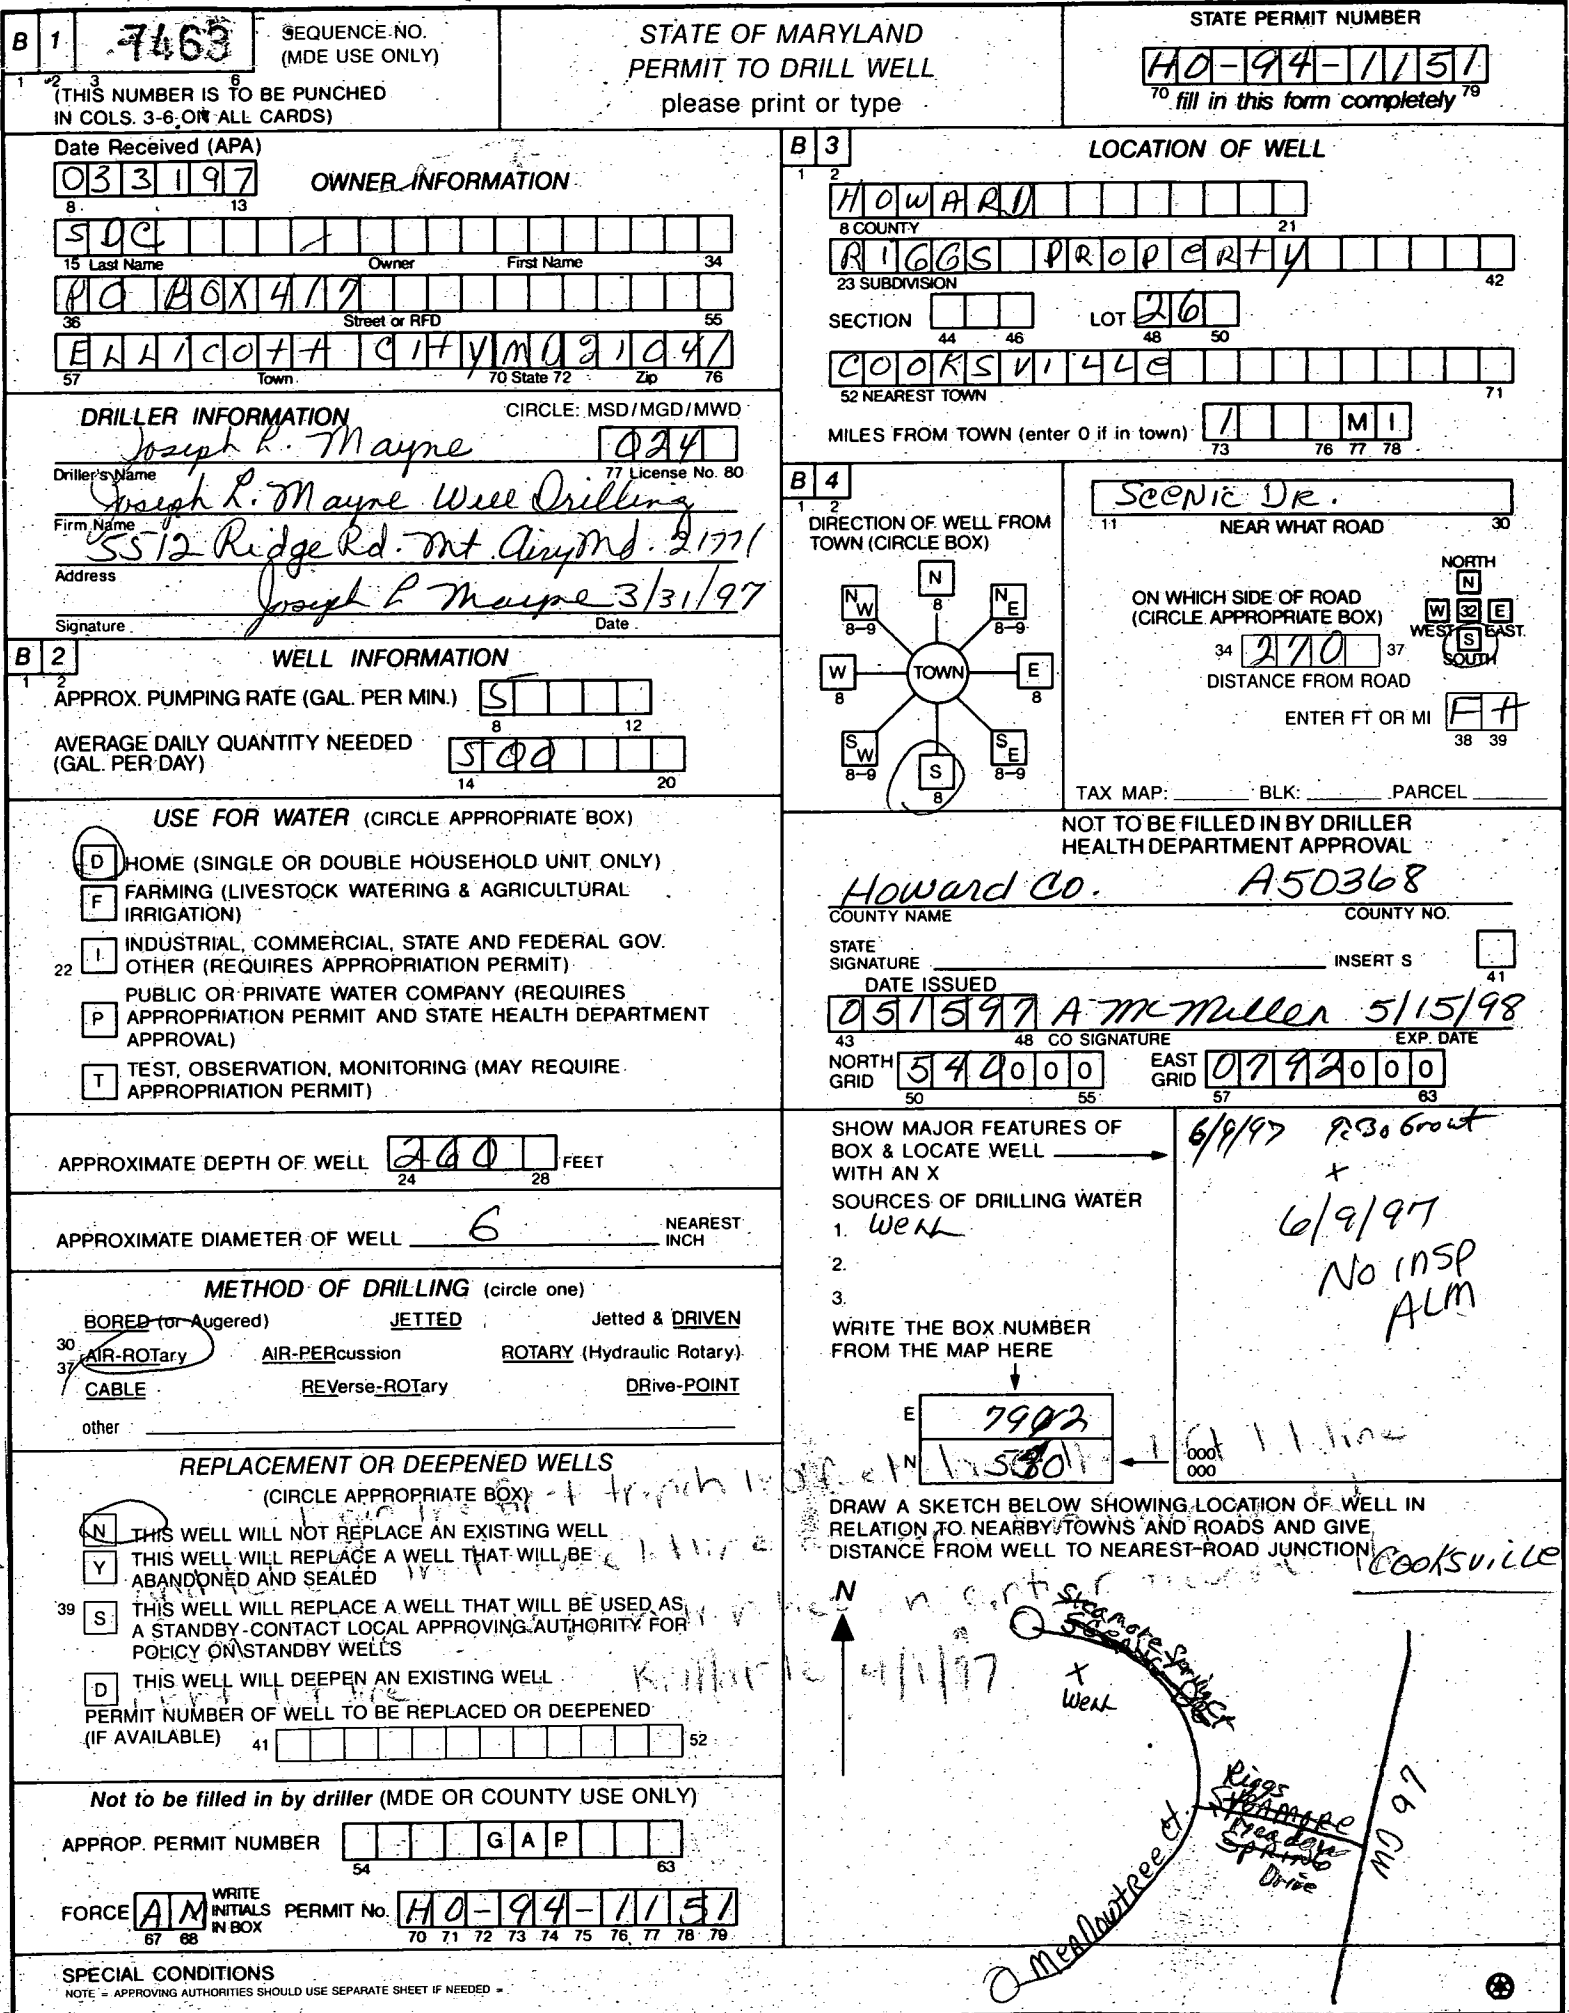 B 1 7463 SEQUENCE NO. (MDE USE ONLY)
1 2 3 6
(THIS NUMBER IS TO BE PUNCHED
IN COLS. 3-6 ON ALL CARDS)
STATE OF MARYLAND
PERMIT TO DRILL WELL
please print or type
STATE PERMIT NUMBER
HO-94-1151
70 fill in this form completely 79
Date Received (APA)
033197
8 13
OWNER INFORMATION
SDC
15 Last Name Owner First Name 34
PO BOX 417
36 Street or RFD 55
ELLICOTT CITY MD 21041
57 Town 70 State 72 Zip 76
DRILLER INFORMATION CIRCLE: MSD/MGD/MWD
Joseph L. Mayne 024
Driller's Name 77 License No. 80
Joseph L. Mayne Well Drilling
Firm Name
5512 Ridge Rd. Mt. Airy Md. 21771
Address
Joseph L Mayne 3/31/97
Signature Date
B 2 WELL INFORMATION
1 2
APPROX. PUMPING RATE (GAL. PER MIN.) 5
8 12
AVERAGE DAILY QUANTITY NEEDED
(GAL. PER DAY) 500
14 20
USE FOR WATER (CIRCLE APPROPRIATE BOX)
D HOME (SINGLE OR DOUBLE HOUSEHOLD UNIT ONLY)
F FARMING (LIVESTOCK WATERING & AGRICULTURAL
IRRIGATION)
22 I INDUSTRIAL, COMMERCIAL, STATE AND FEDERAL GOV.
OTHER (REQUIRES APPROPRIATION PERMIT)
P PUBLIC OR PRIVATE WATER COMPANY (REQUIRES
APPROPRIATION PERMIT AND STATE HEALTH DEPARTMENT
APPROVAL)
T TEST, OBSERVATION, MONITORING (MAY REQUIRE
APPROPRIATION PERMIT)
APPROXIMATE DEPTH OF WELL 260 FEET
24 28
APPROXIMATE DIAMETER OF WELL 6 NEAREST
INCH
METHOD OF DRILLING (circle one)
BORED (or Augered) JETTED Jetted & DRIVEN
30
37 AIR-ROTary AIR-PERcussion ROTARY (Hydraulic Rotary)
CABLE REVerse-ROTary DRive-POINT
other
REPLACEMENT OR DEEPENED WELLS
(CIRCLE APPROPRIATE BOX)
N THIS WELL WILL NOT REPLACE AN EXISTING WELL
Y THIS WELL WILL REPLACE A WELL THAT WILL BE
ABANDONED AND SEALED
39 S THIS WELL WILL REPLACE A WELL THAT WILL BE USED AS
A STANDBY-CONTACT LOCAL APPROVING AUTHORITY FOR
POLICY ON STANDBY WELLS
D THIS WELL WILL DEEPEN AN EXISTING WELL
4/1/97
PERMIT NUMBER OF WELL TO BE REPLACED OR DEEPENED
(IF AVAILABLE) 41 52
Not to be filled in by driller (MDE OR COUNTY USE ONLY)
APPROP. PERMIT NUMBER G A P
54 63
FORCE AM WRITE
INITIALS
IN BOX PERMIT No. HO-94-1151
67 68 70 71 72 73 74 75 76 77 78 79
SPECIAL CONDITIONS
NOTE = APPROVING AUTHORITIES SHOULD USE SEPARATE SHEET IF NEEDED =
B 3 LOCATION OF WELL
1 2
HOWARD
8 COUNTY 21
RIGGS PROPERTY
23 SUBDIVISION 42
SECTION LOT 26
44 46 48 50
COOKSVILLE
52 NEAREST TOWN 71
MILES FROM TOWN (enter 0 if in town) 1 M I
73 76 77 78
B 4
1 2
DIRECTION OF WELL FROM
TOWN (CIRCLE BOX)
N 8
NW 8-9
NE 8-9
W 8
TOWN
E 8
SW 8-9
S 8
SE 8-9
SCENIC DR.
11 NEAR WHAT ROAD 30
ON WHICH SIDE OF ROAD
(CIRCLE APPROPRIATE BOX)
NORTH
N
W 32 E
WEST EAST
S
SOUTH
34 270 37
DISTANCE FROM ROAD
ENTER FT OR MI Ft
38 39
TAX MAP: BLK: PARCEL
NOT TO BE FILLED IN BY DRILLER
HEALTH DEPARTMENT APPROVAL
Howard Co. A50368
COUNTY NAME COUNTY NO.
STATE
SIGNATURE INSERT S
41
DATE ISSUED
051597 A McMiller 5/15/98
43 48 CO SIGNATURE EXP. DATE
NORTH
GRID 540000 EAST
GRID 0792000
50 55 57 63
SHOW MAJOR FEATURES OF
BOX & LOCATE WELL
WITH AN X
6/9/97 Grout
x
6/9/97
No insp
ALM
SOURCES OF DRILLING WATER
1. Well
2.
3.
WRITE THE BOX NUMBER
FROM THE MAP HERE
E 7902
N
000
000
DRAW A SKETCH BELOW SHOWING LOCATION OF WELL IN
RELATION TO NEARBY TOWNS AND ROADS AND GIVE
DISTANCE FROM WELL TO NEAREST ROAD JUNCTION
COOKSVILLE
N
Sycamore Spring Ct
X
Well
Riggs
SYCAMORE
Meadow
SPRING
Drive
MD 97
Meadowtree Ct.